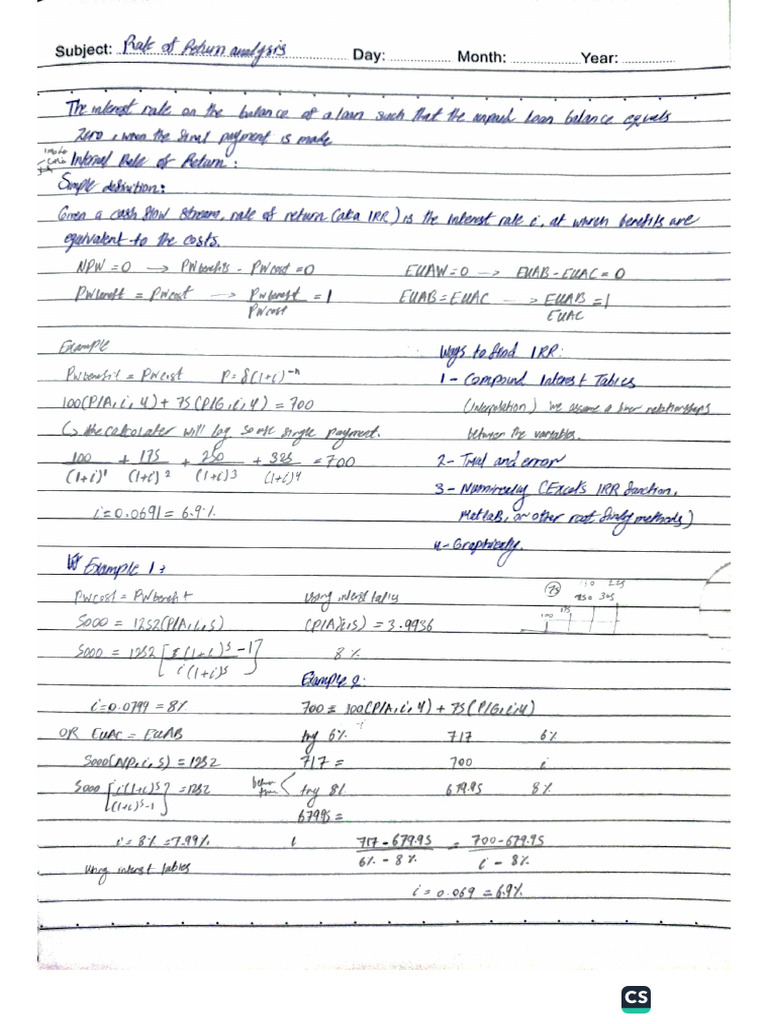 Subject: Rate of Return analysis Day: Month: Year:
The interest rate on the balance of a loan such that the unpaid loan balance equals
zero, when the final payment is made
Internal Rate of Return:
Simple definition:
Given a cash flow stream, rate of return (aka IRR) is the interest rate i, at which benefits are
equivalent to the costs.
NPW = 0 → PW benefits - PW cost = 0
EUAW = 0 → EUAB - EUAC = 0
PW benefit = PW cost → PW benefit / PW cost = 1
EUAB = EUAC → EUAB / EUAC = 1
Example
PW benefit = PW cost P = f(1+i)^-n
100(P/A, i, 4) + 75(P/G, i, 4) = 700
↳ the calculater will lag so use single payment.
100/(1+i)^1 + 175/(1+i)^2 + 250/(1+i)^3 + 325/(1+i)^4 = 700
i = 0.0691 = 6.9%
Ways to find IRR:
1- Compound Interest Tables
(interpolation) we assume a liner relationships
between the variables.
2- Trial and error
3- Numirecley (Excel's IRR function,
Matlab, or other root finding methods)
4- Graphically.
Example 1:
PW cost = PW benefit
5000 = 1252(P/A, i, 5)
5000 = 1252 [(1+i)^5 - 1 / i(1+i)^5]
i = 0.0799 = 8%
OR EUAC = EUAB
5000(A/P, i, 5) = 1252
5000 [i(1+i)^5 / (1+i)^5 - 1] = 1252
i = 8% = 7.99%
using interest tables
using interest tables
(P/A, i, 5) = 3.9936
8%
75
250 325
100 175
Example 2:
700 = 100(P/A, i, 4) + 75(P/G, i, 4)
try 6% 717 6%
717 = 700 i
try 8% 679.95 8%
679.95 =
i 717 - 679.95 / 6% - 8% = 700 - 679.95 / i - 8%
i = 0.069 = 6.9%
CS